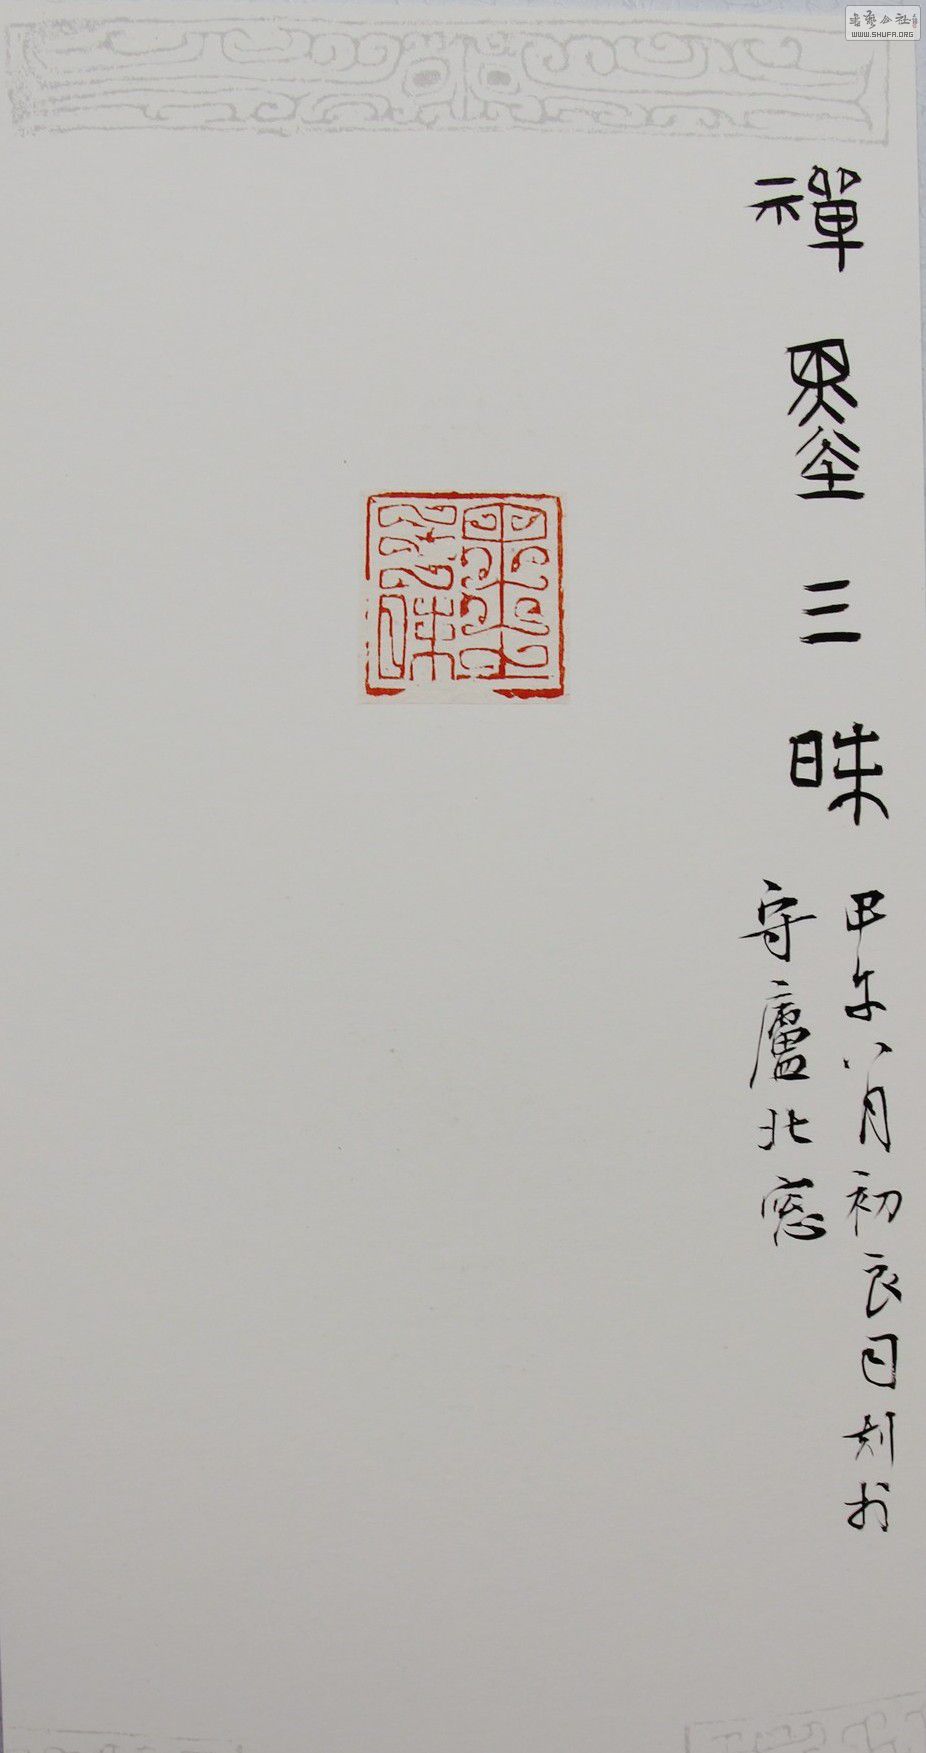 禪墨三昧
甲午八月初良日刻於
守廬北窓
書藝公社
WWW.SHUFA.ORG